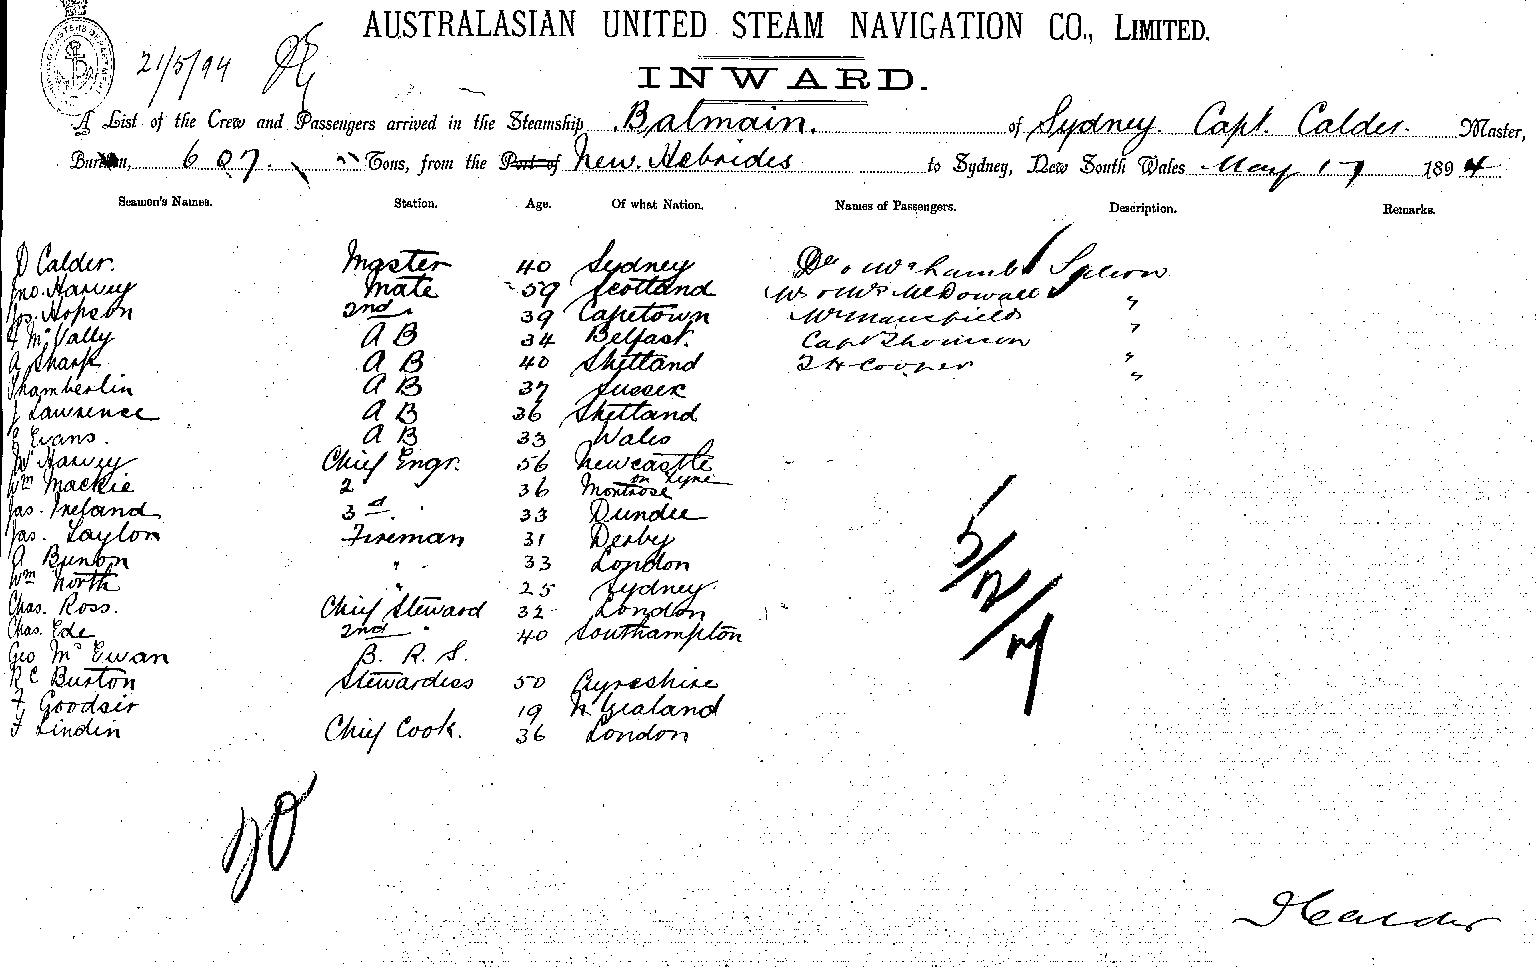 AUSTRALASIAN UNITED STEAM NAVIGATION CO., LIMITED.
21/5/94
INWARD.
A List of the Crew and Passengers arrived in the Steamship Balmain. of Sydney. Capt. Calder. Master,
Burthen, 607. Tons, from the Port of New. Hebrides to Sydney, New South Wales May 17 1894
Seamen's Names. Station. Age. Of what Nation. Names of Passengers. Description. Remarks.
D Calder. Master 40 Sydney Dr & Mrs Lamb Saloon
Jno. Harvey Mate 59 Scotland Mr & Mrs McDowall "
Jos. Hopson 2nd. 39 Capetown Mr Mansfield "
McVally A B 34 Belfast. Capt Thomson "
A Sharp A B 40 Shetland T H Cooper "
Chamberlin A B 37 Sussex
J Lawrence A B 36 Shetland
E Evans. A B 33 Wales
W Harvey Chief Engr. 56 Newcastle on Tyne
Wm Mackie 2 36 Montrose
Jas. Ireland 3d. 33 Dundee
Jas. Taylor Fireman 31 Derby
A Bunon " 33 London
Wm North " 25 Sydney
Chas. Ross. Chief Steward 32 London
Chas. Ede 2nd " 40 Southampton
Geo McEwan B. R. S.
R C Burton Stewardess 50 Ayreshire
F Goodsir 19 N. Zealand
F Lindin Chief Cook. 36 London
5/12/17
20
D Calder